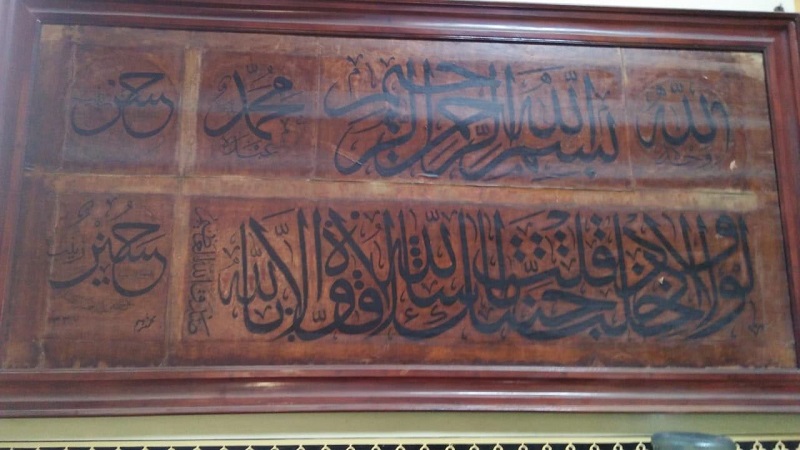 الله بسم الله الرحمن الرحيم محمد حسن
ولولا اذ دخلت جنتك قلت ما شاء الله لا قوة الا بالله حسين